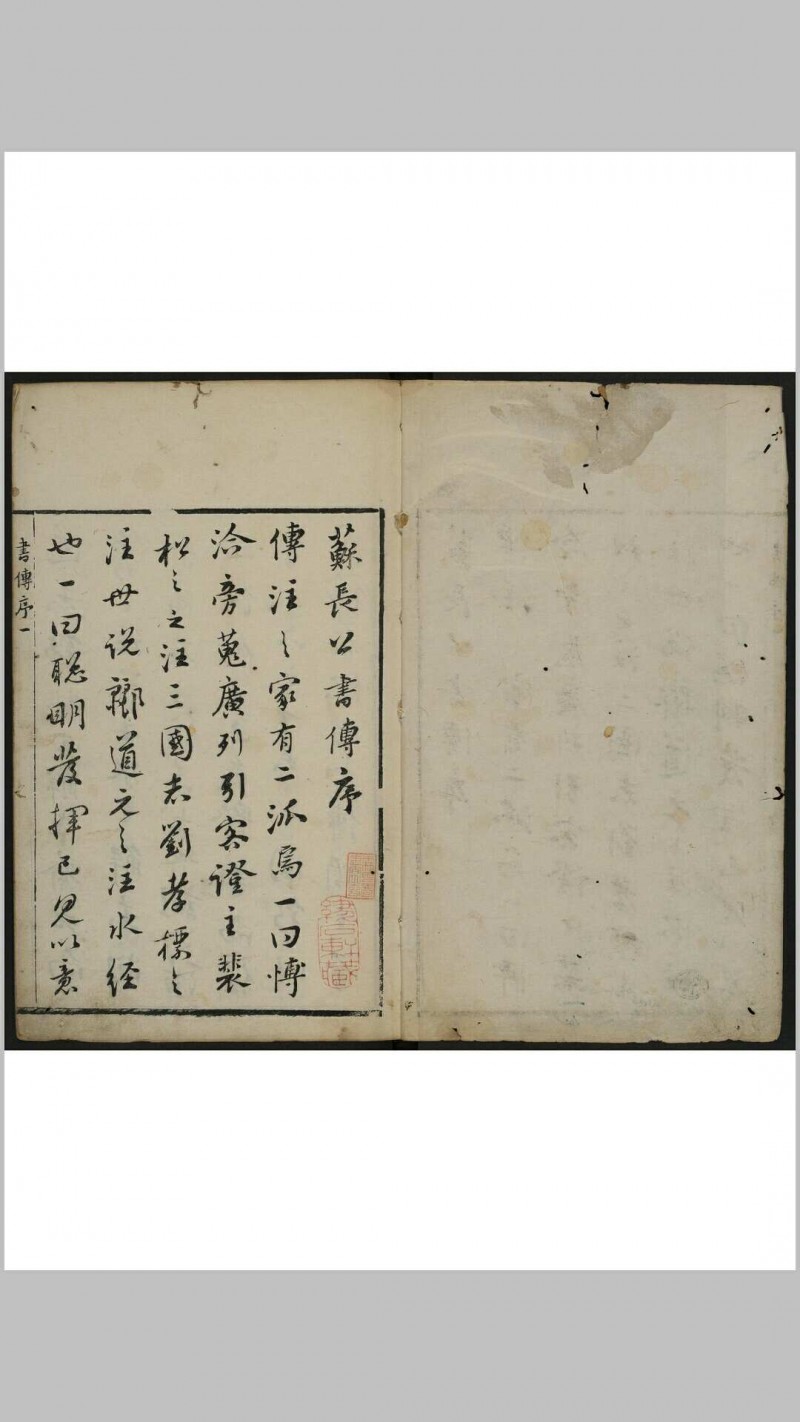 蘇長公書傳序
傳注之家有二派焉一曰愽
洽旁蒐廣列引客證主裴
松之之注三國志劉孝標之
注世说酈道元之注水経
也一曰聡明發揮己見以意
書傳序一